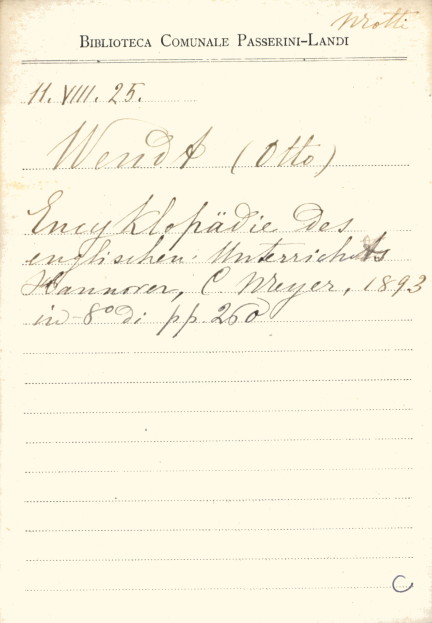 BIBLIOTECA COMUNALE PASSERINI-LANDI
11. VIII. 25.
Wendt (Otto)
Encyklopädie des
englischen Unterrichts
Hannover, C. Meyer, 1893
in-8° di pp. 260
C